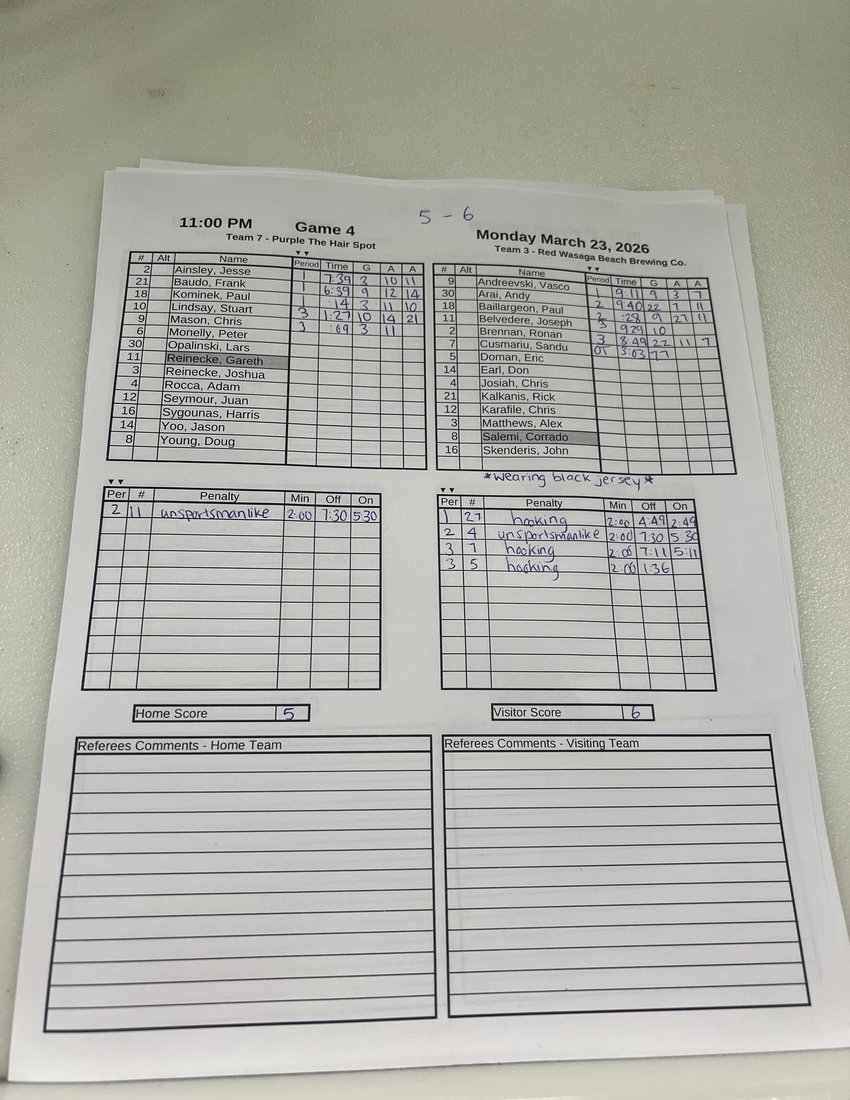 5 - 6
11:00 PM Game 4 Monday March 23, 2026
Team 7 - Purple The Hair Spot
Team 3 - Red Wasaga Beach Brewing Co.
# Alt Name Period Time G A A
2 Ainsley, Jesse 1 7:39 3 10 11
21 Baudo, Frank 1 6:39 9 12 14
18 Kominek, Paul 1 :14 3 11 10
10 Lindsay, Stuart 3 1:27 10 14 21
9 Mason, Chris 3 :09 3 11
6 Monelly, Peter
30 Opalinski, Lars
11 Reinecke, Gareth
3 Reinecke, Joshua
4 Rocca, Adam
12 Seymour, Juan
16 Sygounas, Harris
14 Yoo, Jason
8 Young, Doug
# Alt Name Period Time G A A
9 Andreevski, Vasco 1 9:11 9 3 7
30 Arai, Andy 2 9:40 22 7 11
18 Baillargeon, Paul 2 :28 9 27 11
11 Belvedere, Joseph 3 9:29 10
2 Brennan, Ronan 3 8:49 22 11 7
7 Cusmariu, Sandu OT 3:03 77
5 Doman, Eric
14 Earl, Don
4 Josiah, Chris
21 Kalkanis, Rick
12 Karafile, Chris
3 Matthews, Alex
8 Salemi, Corrado
16 Skenderis, John
*wearing black jersey*
Per # Penalty Min Off On
2 11 unsportsmanlike 2:00 7:30 5:30
Per # Penalty Min Off On
1 27 hooking 2:00 4:49 2:49
2 4 unsportsmanlike 2:00 7:30 5:30
3 7 hooking 2:00 7:11 5:11
3 5 hooking 2:00 1:36
Home Score 5
Visitor Score 6
Referees Comments - Home Team
Referees Comments - Visiting Team